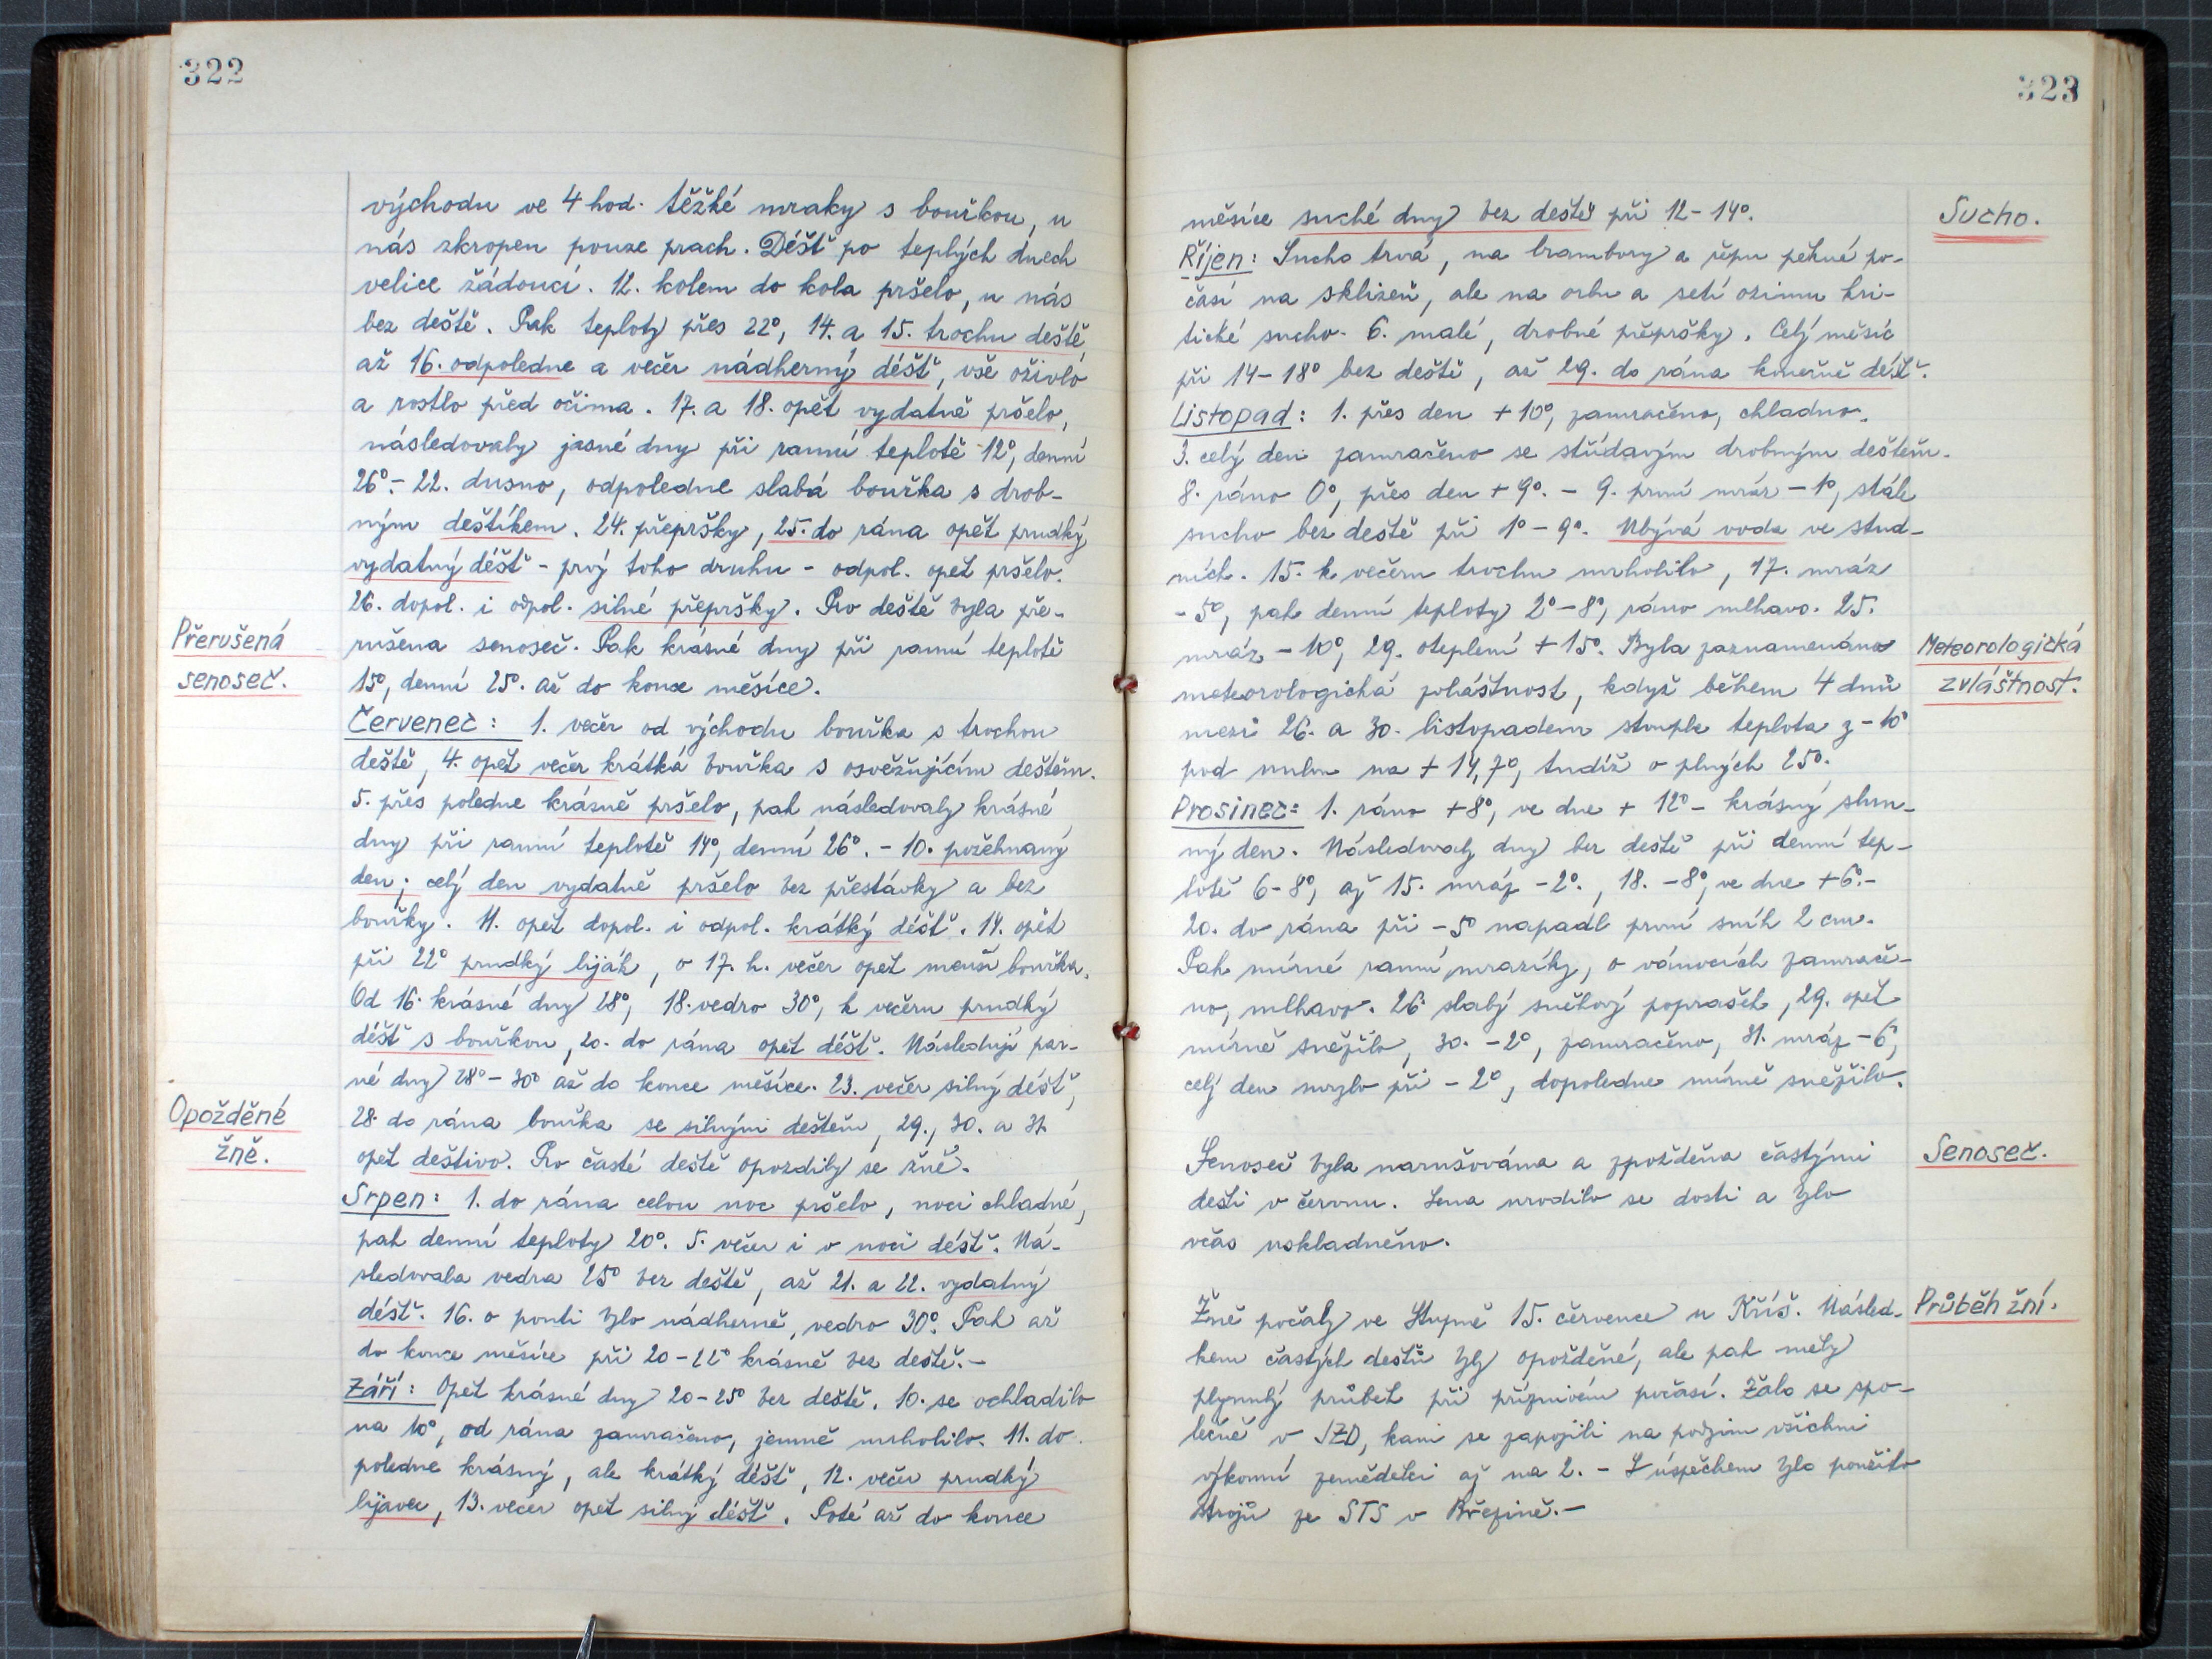 322
východu ve 4 hod. těžké mraky s bouřkou, u
nás zkropen pouze prach. Déšť po teplých dnech
velice žádoucí. 12. kolem do kola pršelo, u nás
bez deště. Pak teploty přes 22°, 14. a 15. trochu deště
až 16. odpoledne a večer nádherný déšť, vše ožívlo
a rostlo před očima. 17. a 18. opět vydatně pršelo,
následovaly jasné dny při ranní teplotě 12°, denní
26°. - 22. dusno, odpoledne slabá bouřka s drob-
ným deštíkem. 24. přepršky, 25. do rána opět prudký,
vydatný déšť - prvý toho druhu - odpol. opět pršelo.
26. dopol. i odpol. silné přepršky. Pro deště byla pře-
Přerušená
senoseč.
rušena senoseč. Pak krásné dny při ranní teplotě
15°, denní 25°. až do konce měsíce.
Červenec: 1. večer od východu bouřka s trochou
deště, 4. opět večer krátká bouřka s osvěžujícím deštěm.
5. přes poledne krásně pršelo, pak následovaly krásné
dny při ranní teplotě 14°, denní 26°. - 10. požehnaný
den; celý den vydatně pršelo bez přestávky a bez
bouřky. 11. opět dopol. i odpol. krátký déšť. 14. opět
při 22° prudký liják, o 17. h. večer opět menší bouřka.
Od 16. krásné dny 28°, 18. vedro 30°, k večeru prudký
déšť s bouřkou, 20. do rána opět déšť. Následují par-
né dny 28° - 30° až do konce měsíce. 23. večer silný déšť,
Opožděné
žně.
28. do rána bouřka se silným deštěm, 29., 30. a 31.
opět deštivo. Pro časté deště opozdily se žně.
Srpen: 1. do rána celou noc pršelo, noci chladné,
pak denní teploty 20°. 5. večer i v noci déšť. Ná-
sledovala vedra 25° bez deště, až 21. a 22. vydatný
déšť. 16. o pouti bylo nádherně, vedro 30°. Pak až
do konce měsíce při 20 - 22° krásně bez deště. -
Září: Opět krásné dny 20 - 25° bez deště. 10. se ochladilo
na 10°, od rána zamračeno, jemně mrholilo. 11. do
poledne krásný, ale krátký déšť, 12. večer prudký
lijavec, 13. večer opět silný déšť. Poté až do konce
323
měsíce suché dny bez deště při 12 - 14°.
Sucho.
Říjen: Sucho trvá, na brambory a řepu pěkné po-
časí na sklizeň, ale na orbu a setí ozimu kri-
tické sucho. 6. malé, drobné přepršky. Celý měsíc
při 14 - 18° bez deště, až 29. do rána konečně déšť.
Listopad: 1. přes den + 10°, zamračeno, chladno.
3. celý den zamračeno se střídavým drobným deštěm.
8. ráno 0°, přes den + 9°. - 9. první mráz - 1°, stále
sucho bez deště při 1° - 9°. Ubývá voda ve stud-
ních. 15. k večeru trochu mrholilo, 17. mráz
- 5°, pak denní teploty 2° - 8°, ráno mlhavo. 25.
mráz - 10°, 29. oteplení + 15°. Byla zaznamenána
Meteorologická
zvláštnost.
meteorologická zvláštnost, když během 4 dnů
mezi 26. a 30. listopadem stoupla teplota z - 10°
pod nulou na + 14,7°, tudíž o plných 25°.
Prosinec: 1. ráno + 8°, ve dne + 12° - krásný slun-
ný den. Následovaly dny bez deště při denní tep-
lotě 6 - 8°, až 15. mráz - 2°., 18. - 8°, ve dne + 6°. -
20. do rána při - 5° napadl první sníh 2 cm.
Pak mírné ranní mrazíky, o vánocích zamrače-
no, mlhavo. 26. slabý sněhový poprašek, 29. opět
mírně sněžilo, 30. - 2°, zamračeno, 31. mráz - 6°,
celý den mrzlo při - 2°, dopoledne mírně sněžilo.
Senoseč byla narušována a zpožděna častými
Senoseč.
dešti v červnu. Sena urodilo se dosti a bylo
včas uskladněno.
Žně počaly ve Stupně 15. července u Kříš. Násled-
Průběh žní.
kem častých dešťů byly opožděné, ale pak měly
plynulý průběh při příznivém počasí. Žalo se spo-
lečně v JZD, kam se zapojili na podzim všichni
výkonní zemědělci až na 2. - S úspěchem bylo použito
strojů ze STS v Březině. -